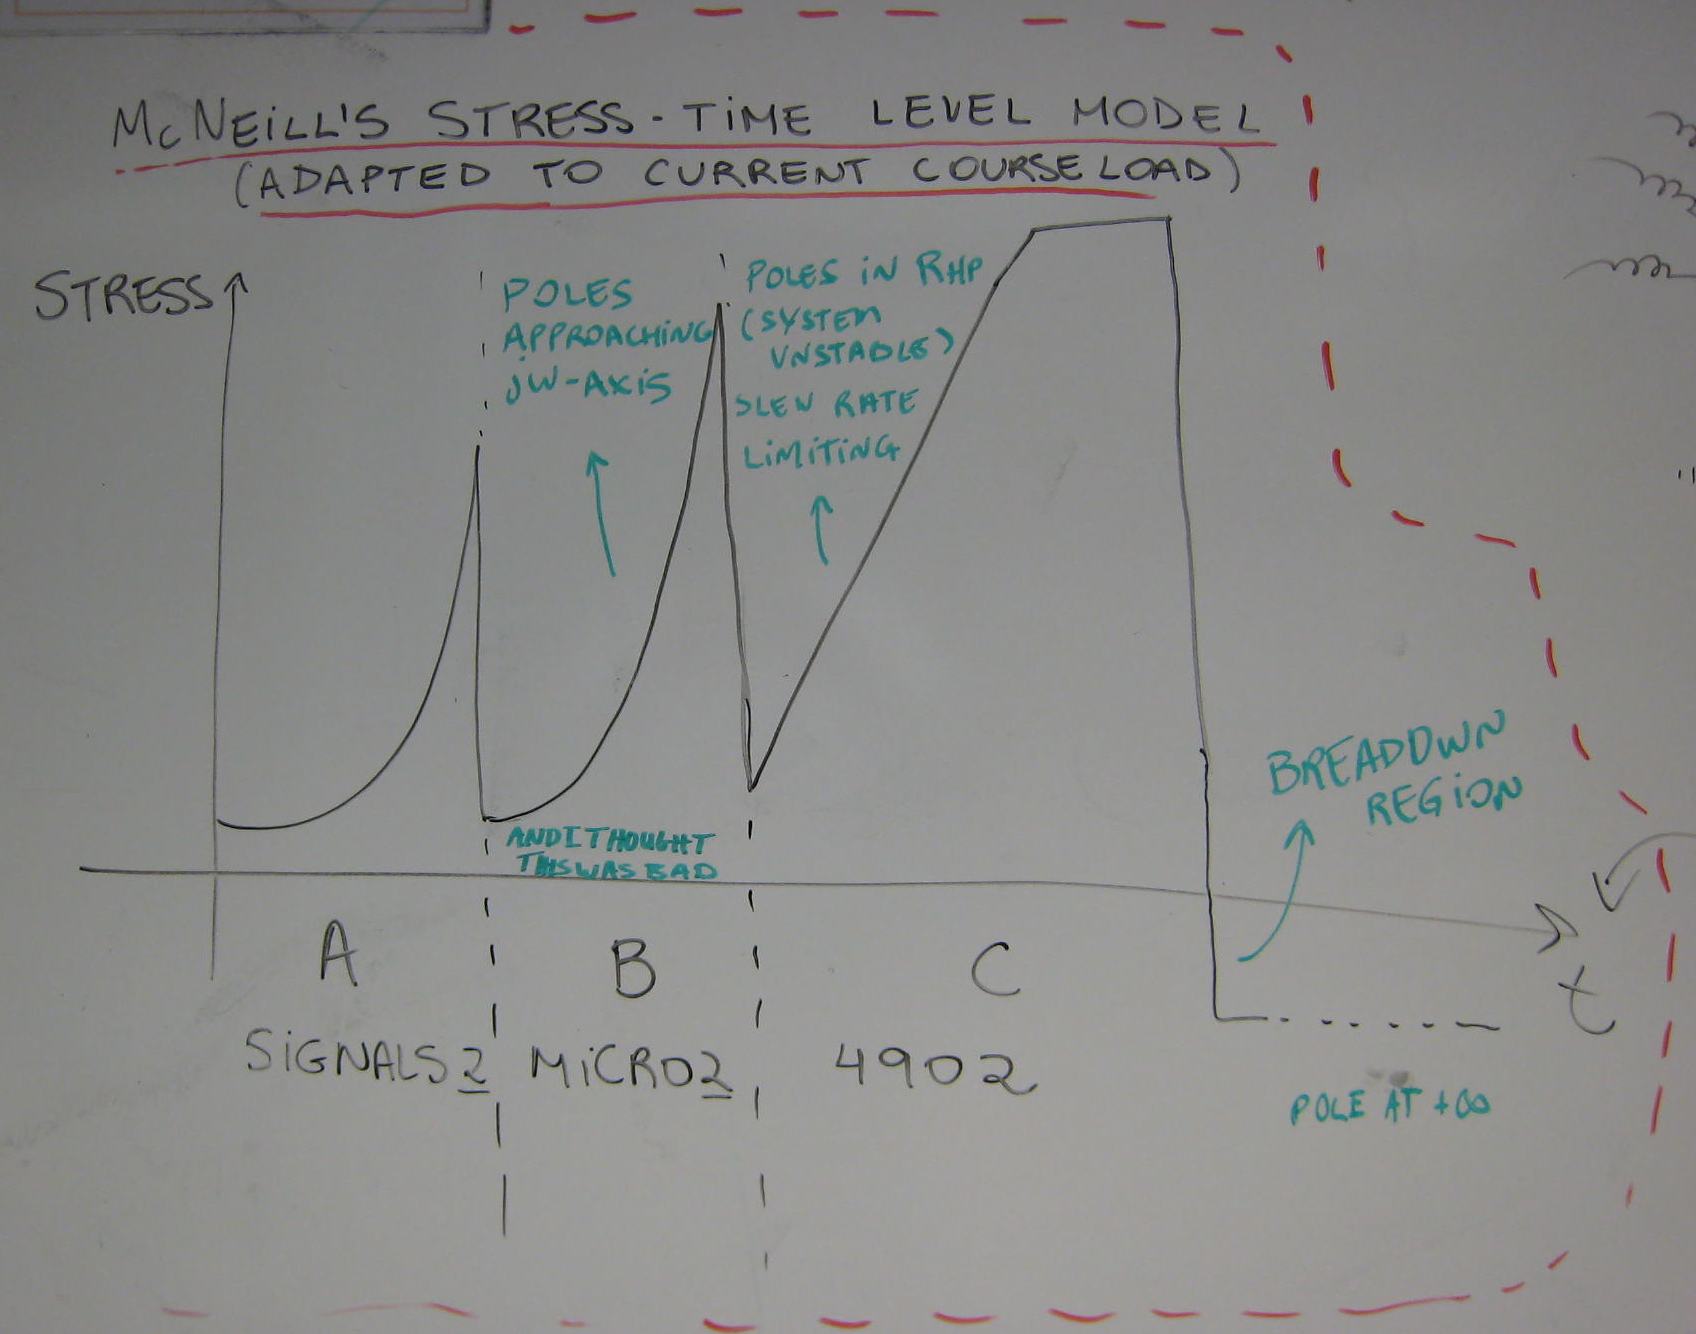 McNEiLL'S STRESS-TiME LEVEL MODEL
(ADAPTED TO CURRENT COURSE LOAD)
STRESS
POLES
APPROACHiNG
jW-AXiS
POLES iN RHP
(SYSTEM
UNSTABLE)
SLEW RATE
LiMiTiNG
BREADDWN
REGiON
AND I THOUGHT
THIS WAS BAD
A
B
C
t
SiGNALS 2
MiCRO 2
4902
POLE AT +∞